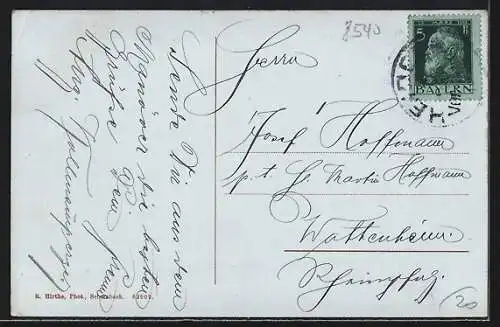 8540
5
BAYERN
Herrn
Josef Hoffmann
p. t. Hs Martin Hoffmann
Wattenheim
Rheinpfalz.
Sende Dir aus dem
Manöver die besten
Grüße
Dein Freund
K. Hirthe, Phot., Schwabach.
20